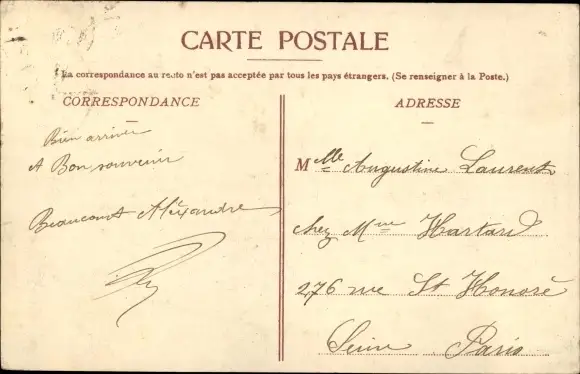 CARTE POSTALE
La correspondance au recto n'est pas acceptée par tous les pays étrangers. (Se renseigner à la Poste.)
CORRESPONDANCE
Bien arriver
A Bon souvenir
Beaucourt Alexandre
ADRESSE
Mlle Augustine Laurent
chez Mme Hartard
276 rue St Honoré
Seine Paris